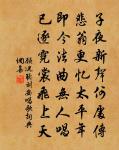 子夜新聲何處傳
悲翁更憶太平年
即今法曲無人唱
已逐霓裳飛上天
顧況聽劉安唱歌詞典
網集